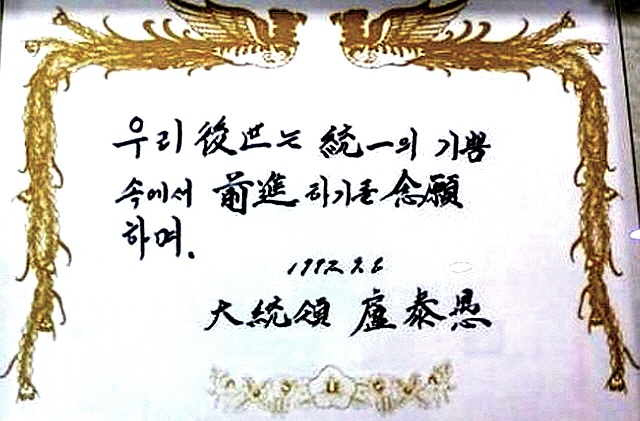 우리 後世는 統一의 기쁨
속에서 前進하기를 念願
하며.
1992. 9. 6
大統領 盧泰愚